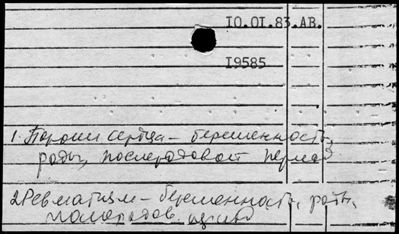 10.01.83.АВ.
19585
1. Пороки сердца – беременность,
роды, послеродовой период
2. Ревматизм – беременность, роды,
послеродов. период